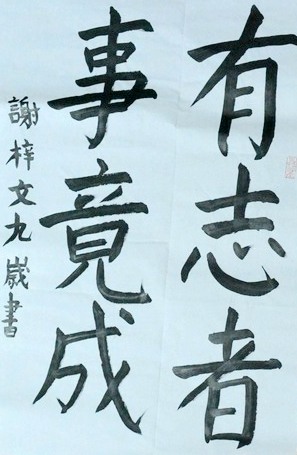 有志者
事竟成
謝梓文九歲書